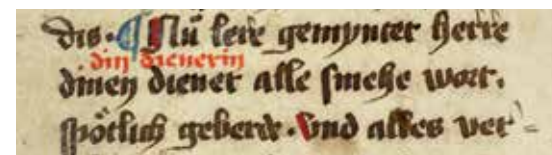 dis. ¶ Nu lere gemynter herre
din dienerin
dinen diener alle smehe wort.
spötlich geberde. vnd alles ver-